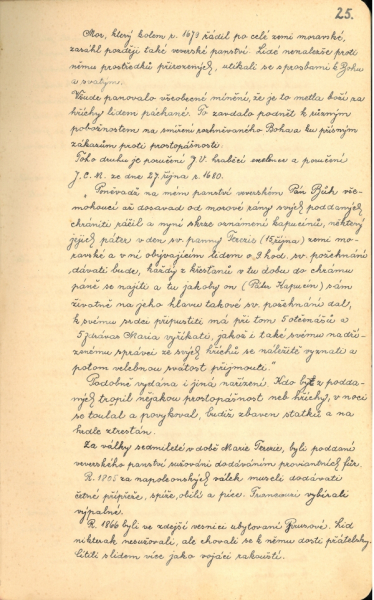 25.
Mor, který kolem r. 1679 řádil po celé zemi moravské,
zasáhl později také veverské panství. Lidé nenalezše proti
němu prostředků přirozených, utíkali se s prosbami k Bohu
a svatým.
Všude panovalo všeobecné mínění, že je to metla boží za
hříchy lidem páchané. To zavdalo podnět k různým
pobožnostem na smíření rozhněvaného Boha a ku přísným
zákazům proti prostopášnosti.
Toho druhu je poučení J. V. hraběcí excelence a poučení
J. C. M. ze dne 27. října r. 1680.
Poněvadž na mém panství veverském Pán Bůh vše-
mohoucí až dosavad od morové rány svých poddaných
chrániti ráčil a nyní skrze oznámení kapucínů, některý
jejich páter v den sv. panny Terezie (15. října) zemi mo-
ravské a v ní obývajícím lidem o 9 hod. sv. požehnání
dávati bude, každý z křesťanů v tu dobu do chrámu
páně se najíti a tu jakoby on (Páter Kapucín) sám
živatně na jeho hlavu takové sv. požehnání dal,
k svému srdci připustiti má při tom 5 otčenášů a
5 Zdrávas Maria vyříkati, jakož i také svému nadří-
zenému správci ze svých hříchů se náležitě vyznati a
potom velebnou svátost přijmouti."
Podobně vydána i jiná nařízení. Kdo by z podda-
ných tropil nějakou prostopášnost neb hříchy, v noci
se toulal a povykoval, budiž zbaven statků a na
hrdle ztrestán.
Za války sedmileté v době Marie Terezie, byli poddaní
veverského panství sužováni dodáváním proviantních fůr.
R. 1805 za napoleonských válek museli dodávati
četné přípřeže, spíže, obilí a píce. Francouzi vybírali
výpalné.
R. 1866 byli ve zdejší vesnici ubytovaní Prusové. Lid
nikterak nesužovali, ale chovali se k němu dosti přátelsky.
lidem více jako vojáci rakouští.